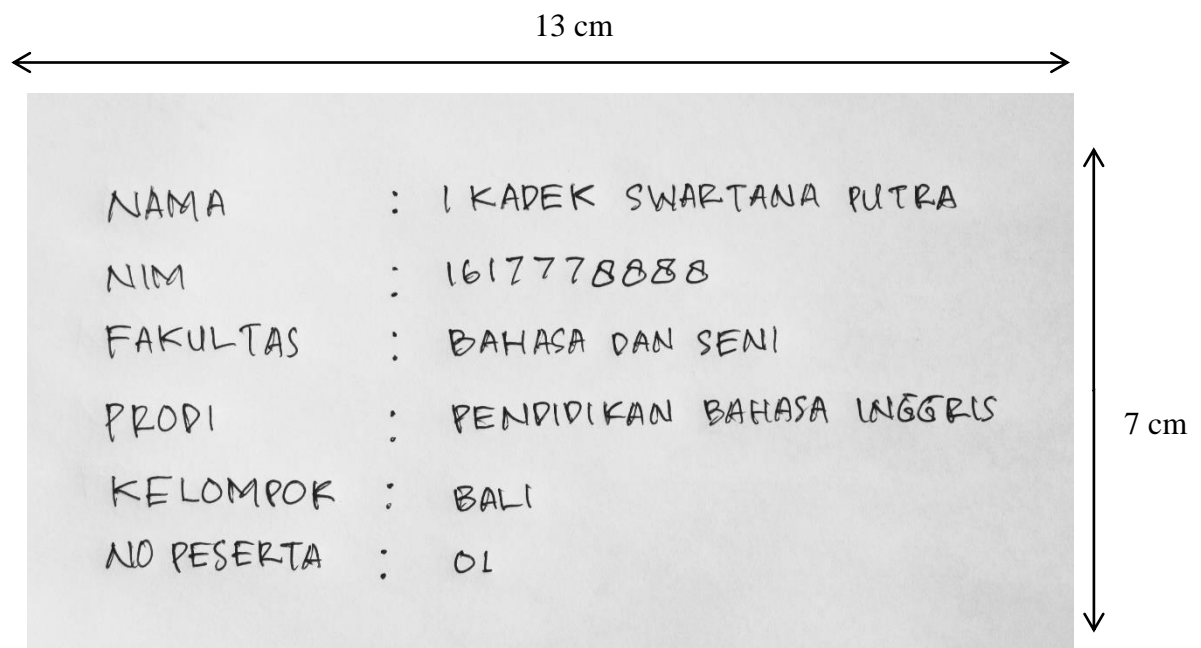 13 cm
NAMA : I KADEK SWARTANA PUTRA
NIM : 1617778888
FAKULTAS : BAHASA DAN SENI
PRODI : PENDIDIKAN BAHASA INGGRIS
7 cm
KELOMPOK : BALI
NO PESERTA : 01